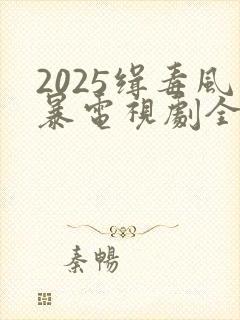 2025缉毒風
暴電視劇全
秦暢